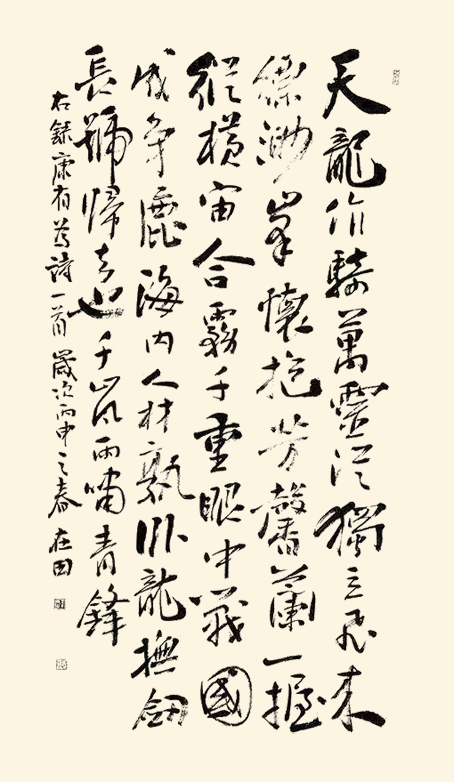 天龍作騎萬靈從獨立飛來
縹渺峯懷抱芳馨蘭一握
縱橫宙合霧千重眼中戰國
成爭鹿海內人材孰臥龍撫劍
長號歸去也千山風雨嘯青鋒
右錄康有為詩一首 歲次丙申之春 在田